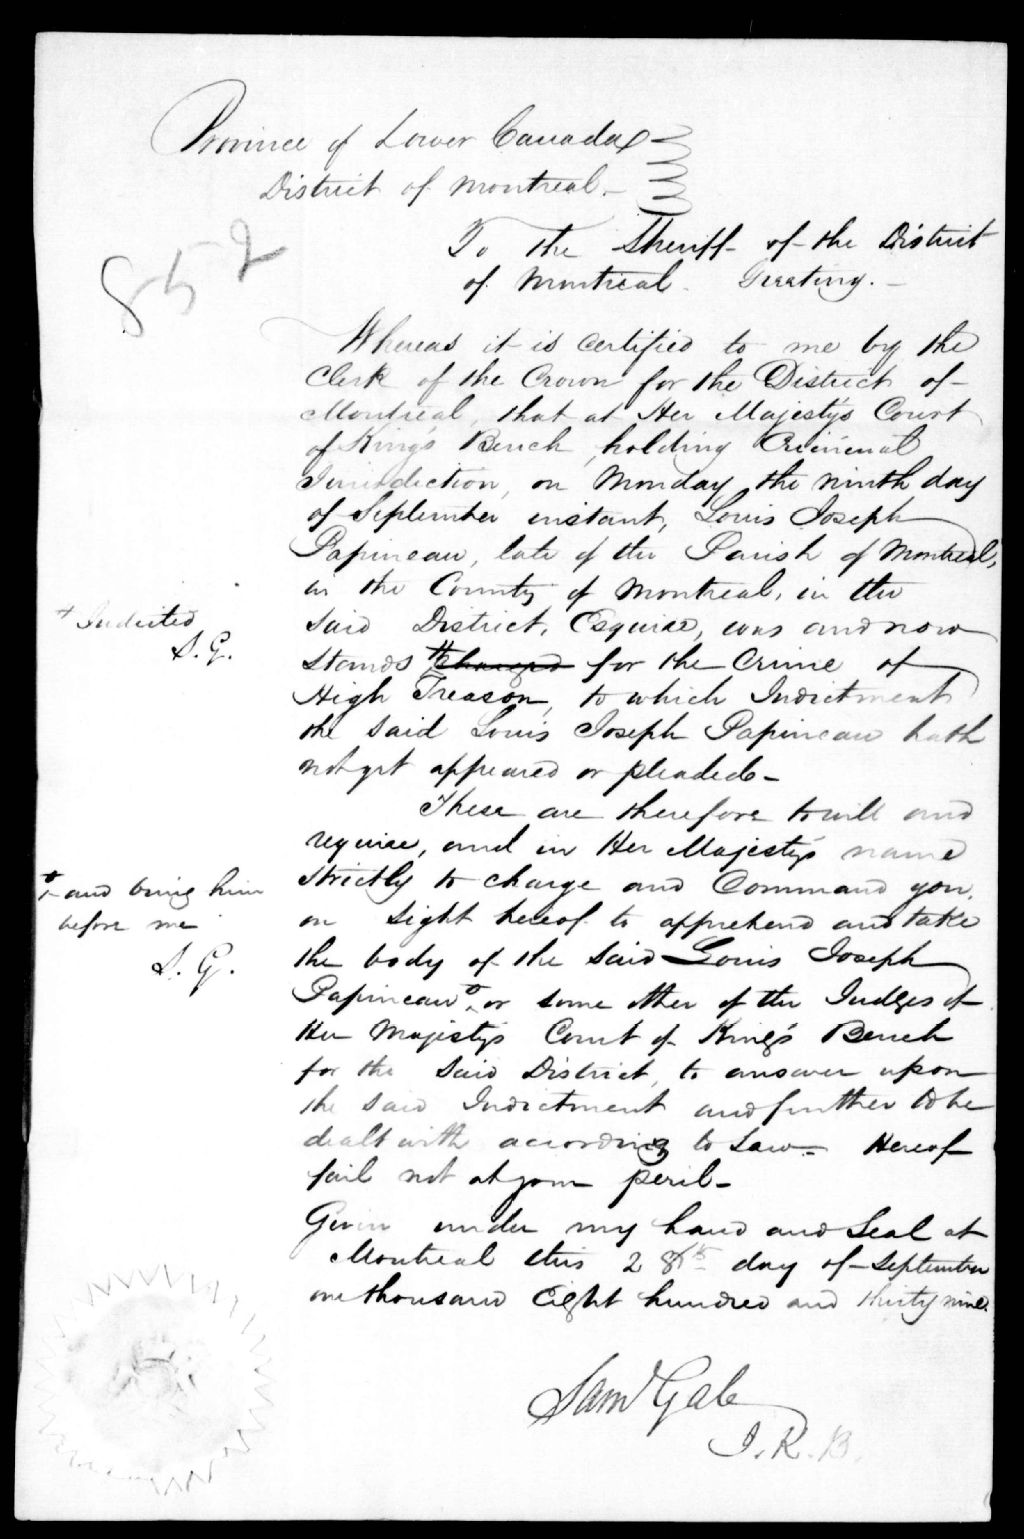 Province of Lower Canada
District of Montreal.
852
To the Sheriff of the District
of Montreal. Greeting.
Whereas it is certified to me by the
Clerk of the Crown for the District of
Montreal, that at Her Majesty's Court
of King's Bench, holding Criminal
Jurisdiction, on Monday the ninth day
of September instant, Louis Joseph
Papineau, late of the Parish of Montreal,
in the County of Montreal, in the
said District, Esquire, was and now
+ Indicted
S. G.
stands + charged for the Crime of
High Treason, to which Indictment
the said Louis Joseph Papineau hath
not yet appeared or pleaded-
These are therefore to will and
require, and in Her Majesty's name
strictly to charge and Command you,
+ and bring him
before me
S. G.
on sight hereof to apprehend and take
the body of the said Louis Joseph
Papineau or some other of the Judges of
Her Majesty's Court of King's Bench
for the said District, to answer upon
the said Indictment and further to be
dealt with according to Law - Hereof
fail not at your peril-
Given under my hand and Seal at
Montreal this 28th day of September
one thousand Eight hundred and thirty nine.
Saml Gale
J. K. B.